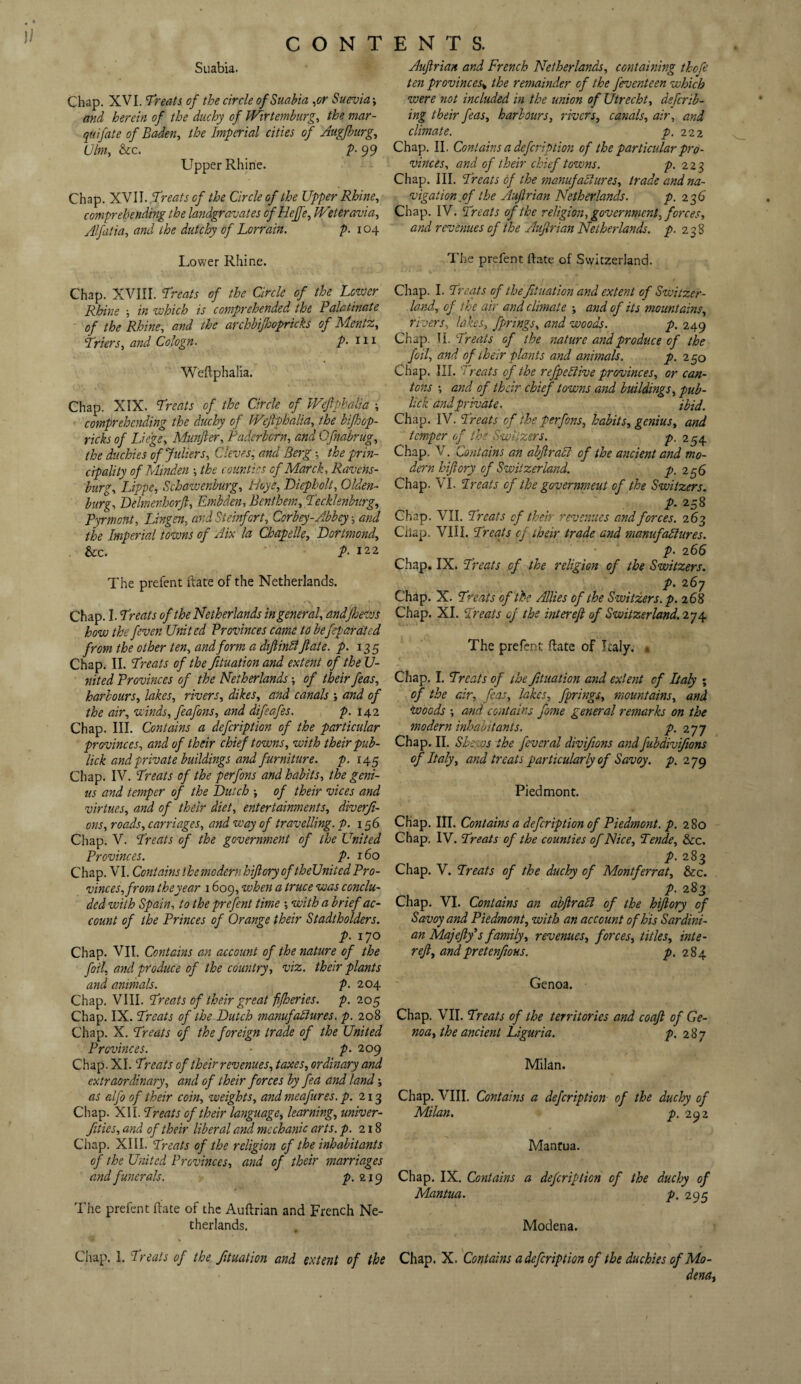 CONTENTS.
Suabia.
Chap. XVI. Treats of the circle of Suabia ,or Suevia;
and herein of the duchy of Wirtemburg, the mar-
quisate of Baden, the Imperial cities of Augsburg,
Ulm, &c. p. 99
Upper Rhine.
Chap. XVII. Treats of the Circle of the Upper Rhine,
comprehending the landgravates of Hesse, Weteravia,
Alsatia, and the dutchy of Lorrain. p. 104
Lower Rhine.
Chap. XVIII. Treats of the Circle of the Lower
Rhine ; in which is comprehended the Palatinate
of the Rhine, and the archbishopricks of Mentz,
Triers, and Cologn. p. 111
Westphalia.
Chap. XIX. Treats of the Circle of Westphalia ;
comprehending the duchy of Westphalia, the bishop-
ricks of Liege, Munster, Paderborn, and Osnabrug,
the duchies of Juliers, Cleves, and Berg ; the prin-
cipality of Minden ; the counties of Marck, Ravens-
burg, Lippe, Schawenburg, Hoye, Diepholt, Olden-
burg, Delmenhorst, Embden, Benthem, Tecklenburg,
Pyrmont, Lingen, and Steinfort, Corbey-Abbey ; and
the Imperial towns of Aix la Chapelle, Dortmond,
&c. p. 122
The present state of the Netherlands.
Chap. I. Treats of the Netherlands in general, and shews
how the seven United Provinces came to be separated
from the other ten, and form a distinct state. p. 135
Chap. II. Treats of the situation and extent of the U-
nited Provinces of the Netherlands ; of their seas,
harbours, lakes, rivers, dikes, and canals ; and of
the air, winds, seasons, and diseases. p. 142
Chap. III. Contains a description of the particular
provinces, and of their chief towns, with their pub-
lick and private buildings and furniture. p. 145
Chap. IV. Treats of the persons and habits, the geni-
us and temper of the Dutch ; of their vices and
virtues, and of their diet, entertainments, diversi-
ons, roads, carriages, and way of travelling. p. 156
Chap. V. Treats of the government of the United
Provinces. p. 160
Chap. VI. Contains the modern history of the United Pro-
vinces, from the year 1609, when a truce was conclu-
ded with Spain, to the present time ; with a brief ac-
count of the Princes of Orange their Stadtholders.
p. 170
Chap. VII. Contains an account of the nature of the
soil, and produce of the country, viz. their plants
and animals. p. 204
Chap. VIII. Treats of their great fisheries. p. 205
Chap. IX. Treats of the Dutch manufactures. p. 208
Chap. X. Treats of the foreign trade of the United
Provinces. p. 209
Chap. XI. Treats of their revenues, taxes, ordinary and
extraordinary, and of their forces by sea and land ;
as also of their coin, weights, and measures. p. 213
Chap. XII. Treats of their language, learning, univer-
sities, and of their liberal and mechanic arts. p. 218
Chap. XIII. Treats of the religion of the inhabitants
of the United Provinces, and of their marriages
and funerals. p. 219
The present state of the Austrian and French Ne-
therlands.
Chap. I. Treats of the situation and extent of the
Austrian and French Netherlands, containing those
ten provinces, the remainder of the seventeen which
were not included in the union of Utrecht, describ-
ing their seas, harbours, rivers, canals, air, and
climate. p. 222
Chap. II. Contains a description of the particular pro-
vinces, and of their chief towns. p. 223
Chap. III. Treats of the manufactures, trade and na-
vigation of the Austrian Netherlands. p. 236
Chap. IV. Treats of the religion, government, forces,
and revenues of the Austrian Netherlands. p. 238
The present state of Switzerland.
Chap. I. Treats of the situation and extent of Switzer-
land, of the air and climate ; and of its mountains,
rivers, lakes, springs, and woods. p. 249
Chap. II. Treats of the nature and produce of the
soil, and of their plants and animals. p. 250
Chap. III. Treats of the respective provinces, or can-
tons ; and of their chief towns and buildings, pub-
lick and private. ibid.
Chap. IV. Treats of the persons, habits, genius, and
temper of the Switzers. p. 254
Chap. V. Contains an abstract of the ancient and mo-
dern history of Switzerland. p. 256
Chap. VI. Treats of the government of the Switzers.
p. 258
Chap. VII. Treats of their revenues and forces. 263
Chap. VIII. Treats of their trade and manufactures.
p. 266
Chap. IX. Treats of the religion of the Switzers.
p. 267
Chap. X. Treats of the Allies of the Switzers. p. 268
Chap. XI. Treats of the interest of Switzerland. 274
The present state of Italy.
Chap. I. Treats of the situation and extent of Italy ;
of the air, seas, lakes, springs, mountains, and
woods ; and contains some general remarks on the
modern inhabitants. p. 277
Chap. II. Shews the several divisions and subdivisions
of Italy, and treats particularly of Savoy. p. 279
Piedmont.
Chap. III. Contains a description of Piedmont. p. 280
Chap. IV. Treats of the counties of Nice, Tende, &c.
p. 283
Chap. V. Treats of the duchy of Montferrat, &c.
p. 283
Chap. VI. Contains an abstract of the history of
Savoy and Piedmont, with an account of his Sardini-
an Majesty's family, revenues, forces, titles, inte-
rest, and pretensions. p. 284
Genoa.
Chap. VII. Treats of the territories and coast of Ge-
noa, the ancient Liguria. p. 287
Milan.
Chap. VIII. Contains a description of the duchy of
Milan. p. 292
Mantua.
Chap. IX. Contains a description of the duchy of
Mantua. p. 295
Modena.
Chap. X. Contains a description of the duchies of Mo-
dena,